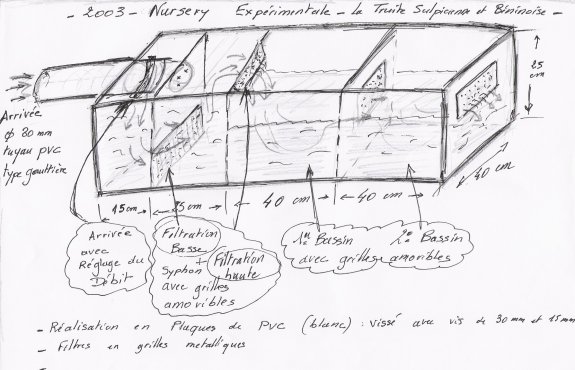 - 2003 - Nursery Expérimentale - La Truite Sulpicienne et Bininoise -
Arrivée
ϕ 80 mm
tuyau PVC
type gouttière
25
cm
40 cm
15 cm
25 cm
40 cm
40 cm
Arrivée
avec
Réglage du
Débit
Filtration
Basse
+
Syphon
avec grilles
amovibles
Filtration
haute
1er Bassin 2e Bassin
avec grilles amovibles
- Réalisation en Plaques de PVC (blanc) : vissé avec vis de 30 mm et 15 mm
- Filtres en grilles metalliques
-